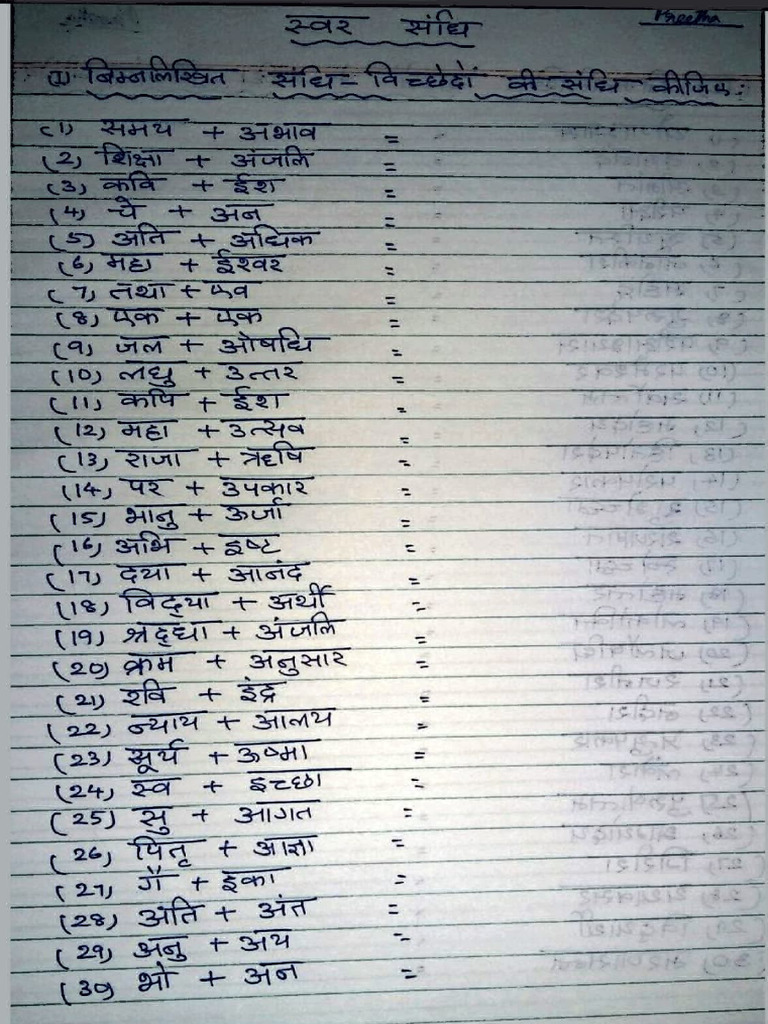 स्वर संधि
Preetha
(I) निम्नलिखित संधि-विच्छेदों की संधि कीजिए:
(1) समय + अभाव =
(2) शिक्षा + अंजलि =
(3) कवि + ईश =
(4) चे + अन =
(5) अति + अधिक =
(6) महा + ईश्वर =
(7) तथा + एव =
(8) एक + एक =
(9) जल + ओषधि =
(10) लघु + उत्तर =
(11) कपि + ईश =
(12) महा + उत्सव =
(13) राजा + ऋषि =
(14) पर + उपकार =
(15) भानु + ऊर्जा =
(16) अभि + इष्ट =
(17) दया + आनंद =
(18) विद्या + अर्थी =
(19) श्रद्धा + अंजलि =
(20) क्रम + अनुसार =
(21) रवि + इंद्र =
(22) न्याय + आलय =
(23) सूर्य + ऊष्मा =
(24) स्व + इच्छा =
(25) सु + आगत =
(26) पितृ + आज्ञा =
(27) गै + इका =
(28) अंति + अंत =
(29) अनु + अय =
(30) भो + अन =